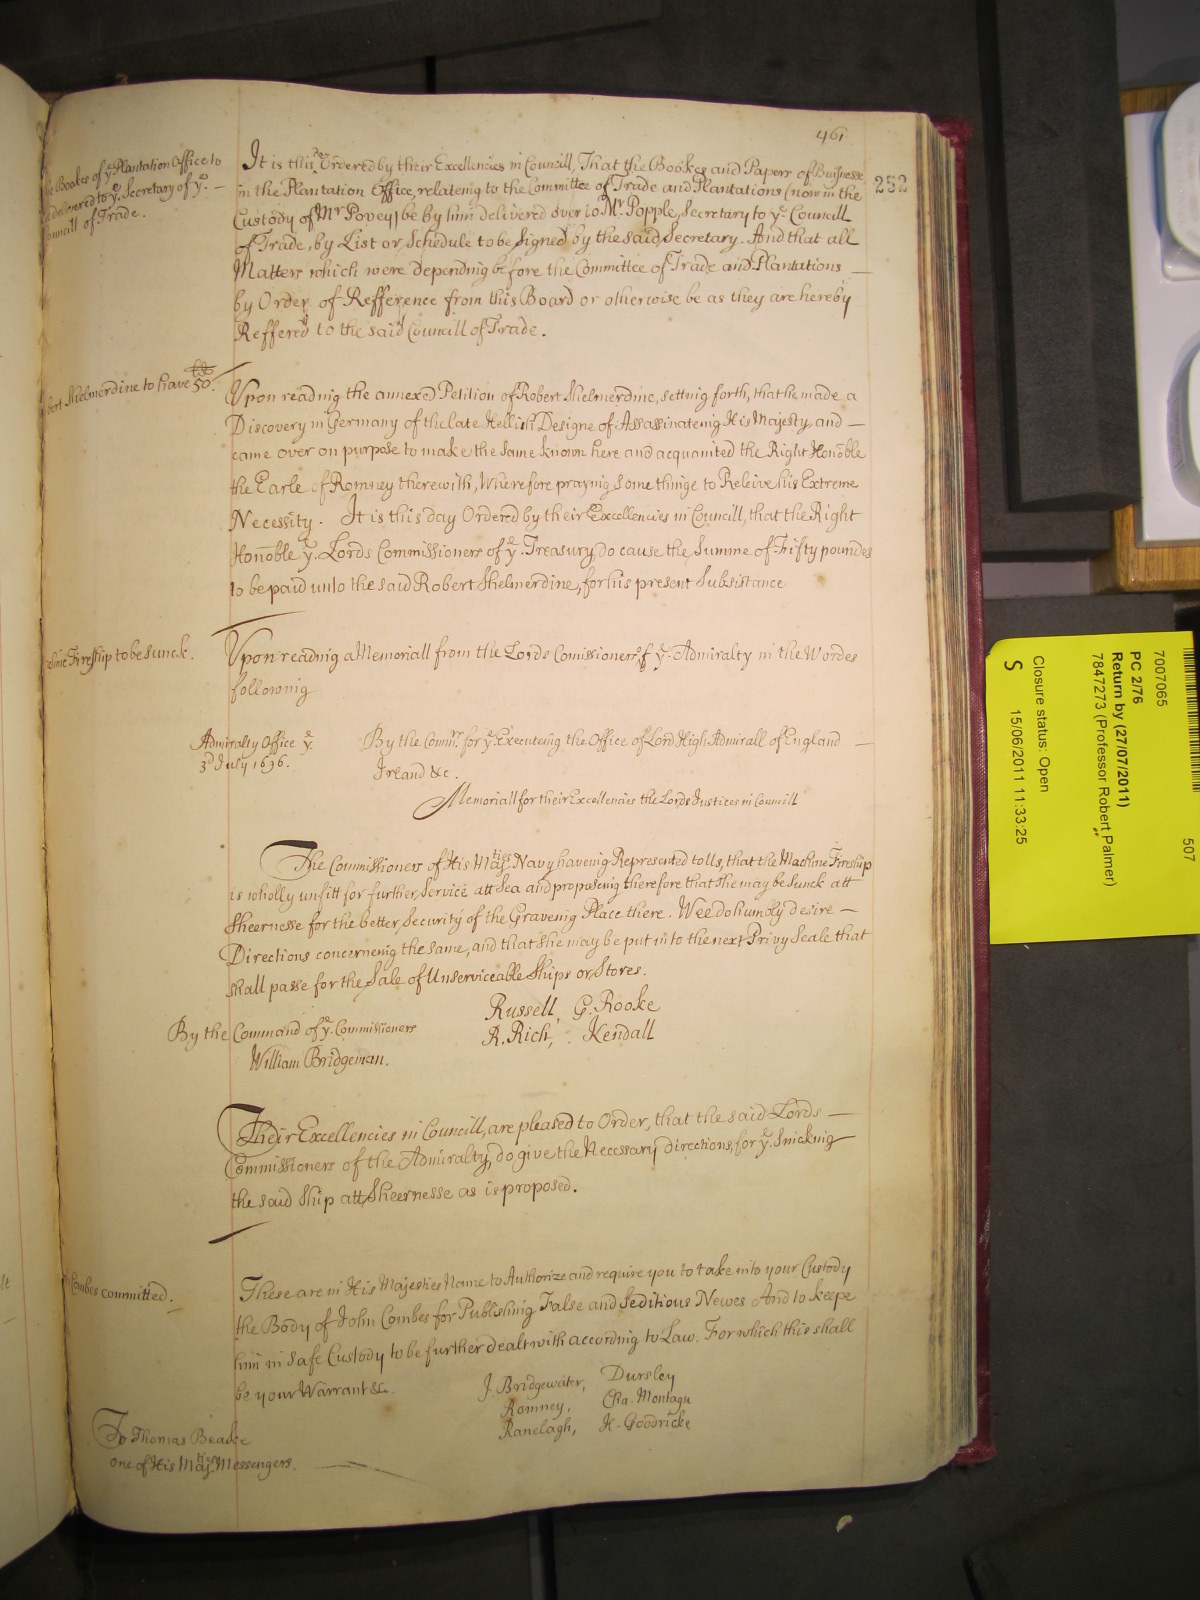 461
252
the Bookes of yͤ Plantation Office to
be delivered to yͤ Secretary of yͤ
Councill of Trade.
It is this Day Ordered by their Excellencies in Councill, That the Bookes and Papers of Buisnesse
in the Plantation Office, relateing to the Committee of Trade and Plantations (now in the
Custody of Mr Povey) be by him delivered over to Mr Popple, Secretary to yͤ Councill
of Trade, by List or Schedule to be Signed by the said Secretary. And that all
Matters which were depending before the Committee of Trade and Plantations —
by Order of Refference from this Board or otherwise be as they are hereby
Reffered to the said Councill of Trade.
bert Shelmerdine to have 50.
Upon reading the annexed Petition of Robert Shelmerdine, setting forth, that he made a
Discovery in Germany of the late Hellish Designe of Assassinateing His Majesty, and —
came over on purpose to make the same known here and acquainted the Right Honoble
the Earle of Romney therewith, Wherefore praying some thinge to Releive his Extreme
Necessity. It is this day Ordered by their Excellencies in Councill, that the Right
Honoble yͤ Lords Commissioners of yͤ Treasury, do cause the Summe of Fifty poundes
to be paid unto the said Robert Shelmerdine, for his present Subsistance
hine Fireship to be sunck.
Upon reading a Memoriall from the Lords Comissioners of yͤ Admiralty in the Wordes
following
Admiralty Office yͤ
3d July 1696.
By the Commrs. for yͤ Executeing the Office of Lord High Admirall of England —
Irland &c.
Memoriall for their Excellencies the Lords Justices in Councill
The Commissioners of His Majties Navy haveing Represented to Us, that the Machine Fireship
is wholly unfitt for further Service att Sea and proposeing therefore that she may be Sunck att
Sheernesse for the better Security of the Graveing Place there. Wee do humbly desire —
Directions concerneing the same, and that she may be put into the next Privy Seale that
shall passe for the Sale of Unserviceable Ships or Stores.
Russell, G. Rooke
R. Rich, Kendall
By the Command of yͤ Commissioners
William Bridgeman.
Their Excellencies in Councill, are pleased to Order, that the said Lords —
Commissioners of the Admiralty, do give the Necessary directions, for yͤ Sincking
the said Ship att Sheernesse as is proposed.
Combes committed.
These are in His Majesties Name to Authorize and require you to take into your Custody
the Body of John Combes for Publishing False and Seditious Newes And to keepe
him in Safe Custody to be further dealt with according to Law. For which this shall
be your Warrant &c.
J. Bridgewater, Dursley
Romney, Cha. Montagu
Ranelagh, H. Goodricke
To Thomas Beake
one of His Majties Messengers.
7007065
507
PC 2/76
Return by (27/07/2011)
7847273 (Professor Robert Palmer)
Closure status: Open
S
15/06/2011 11:33:25